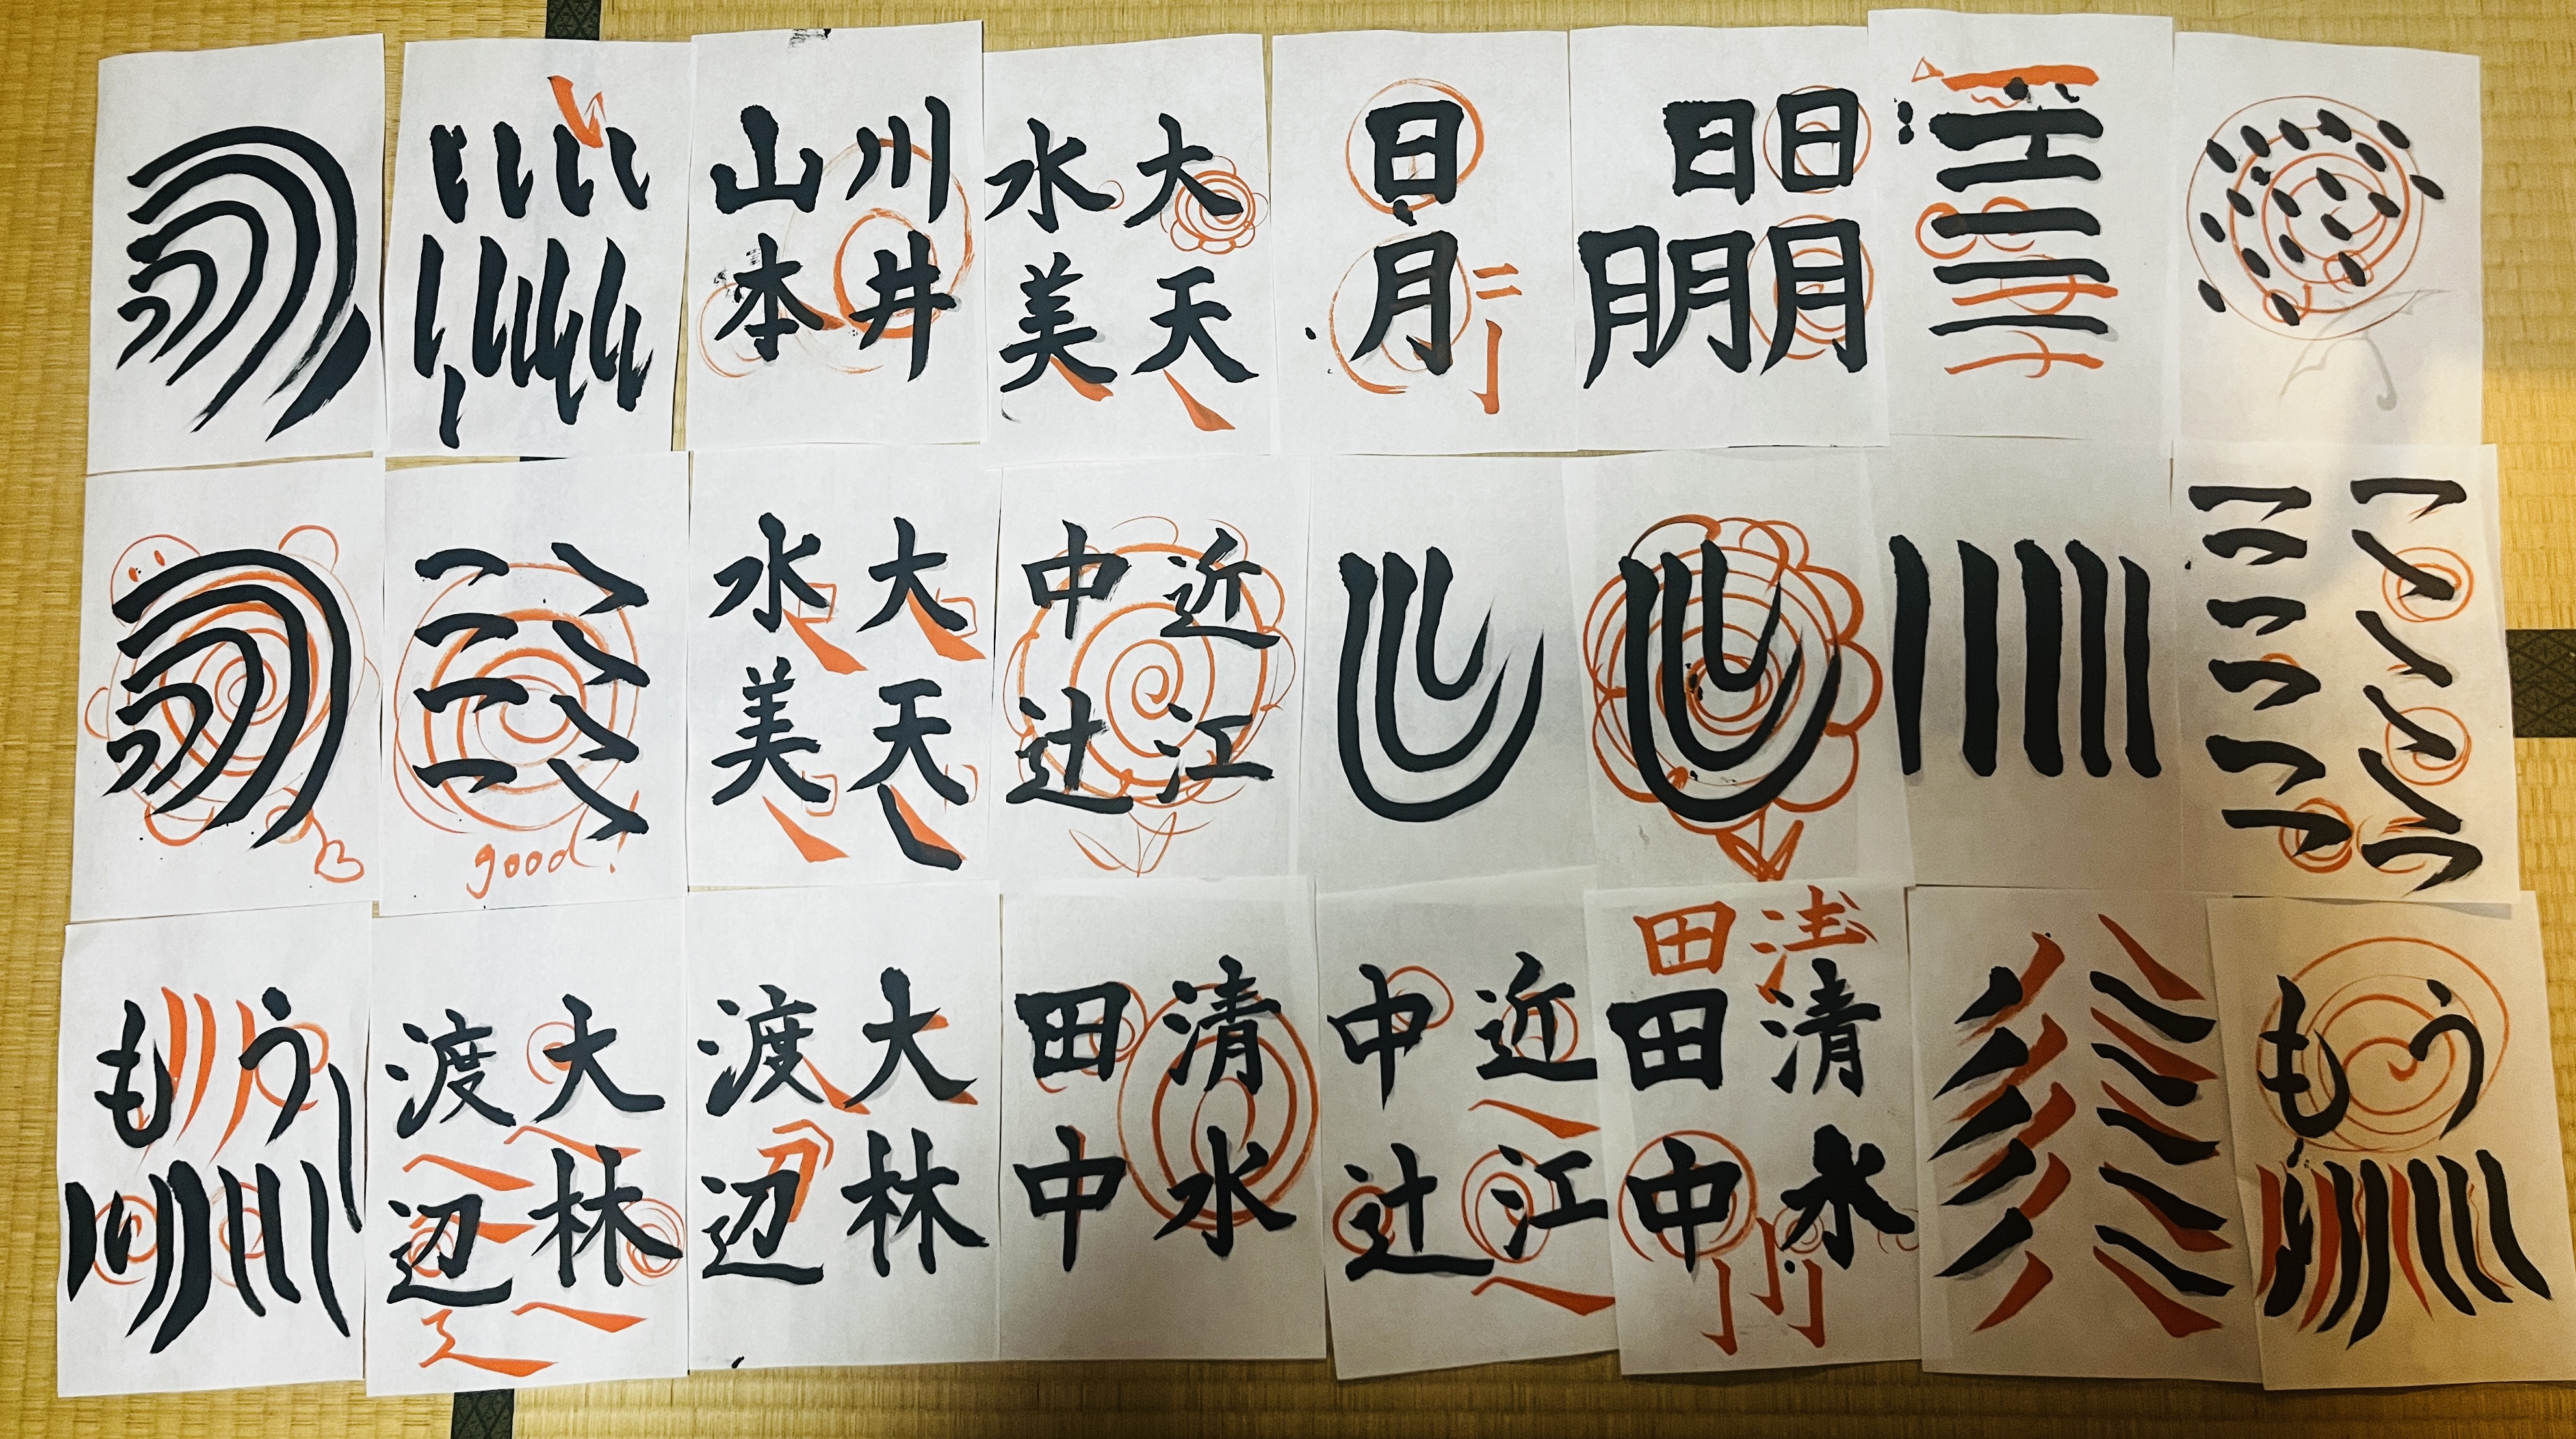 山川
本井
水大
美天
日
月
二
日日
月月月
水大
美天
中近
辻江
good!
もう
渡大
辺林
渡大
辺林
田清
中水
中近
辻江
田
田清
中水
もう